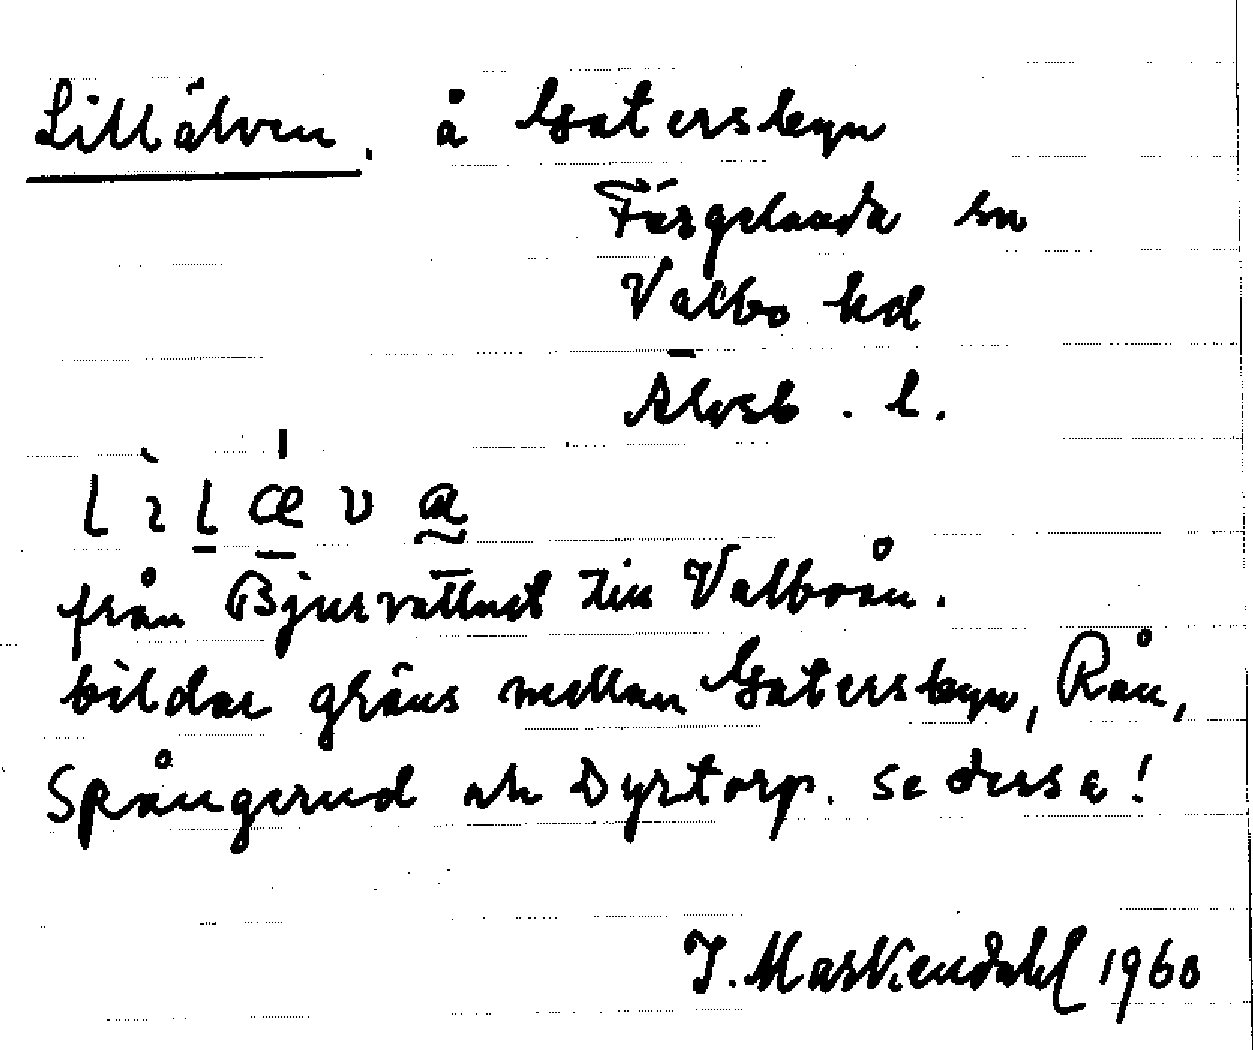 Lillälven, å Gatersbyn
Färgelanda sn
Valbo hd
Älvsb. l.
lìlǽva
från Bjurvattnet till Valboån.
bildar gräns mellan Gatersbyn, Rån,
Spångerud och Dyrtorp. Se dessa!
J. Maskendahl 1960